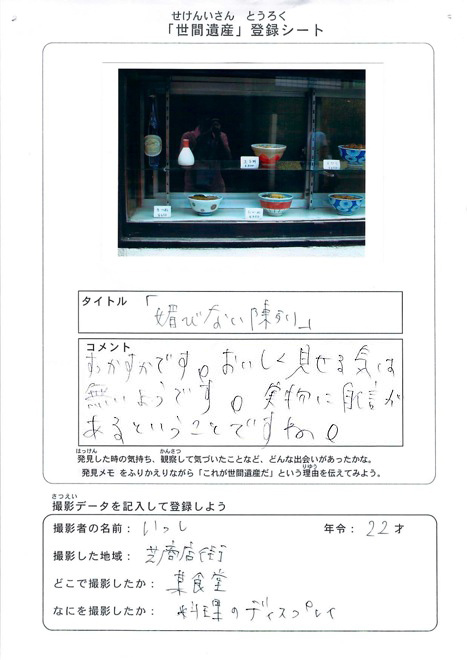 せけんいさん とうろく
「世間遺産」登録シート
タイトル
「媚びない陳列」
コメント
すかすかです。おいしく見せる気は
無いようです。実物に自信が
あるということですね。
はっけん かんさつ
発見した時の気持ち、観察して気づいたことなど、どんな出会いがあったかな。
りゆう
発見メモ をふりかえりながら「これが世間遺産だ」という理由を伝えてみよう。
さつえい
撮影データを記入して登録しよう
撮影者の名前： いっし 年令： 22 才
撮影した地域： 芝商店街
どこで撮影したか： 某食堂
なにを撮影したか： 料理のディスプレイ